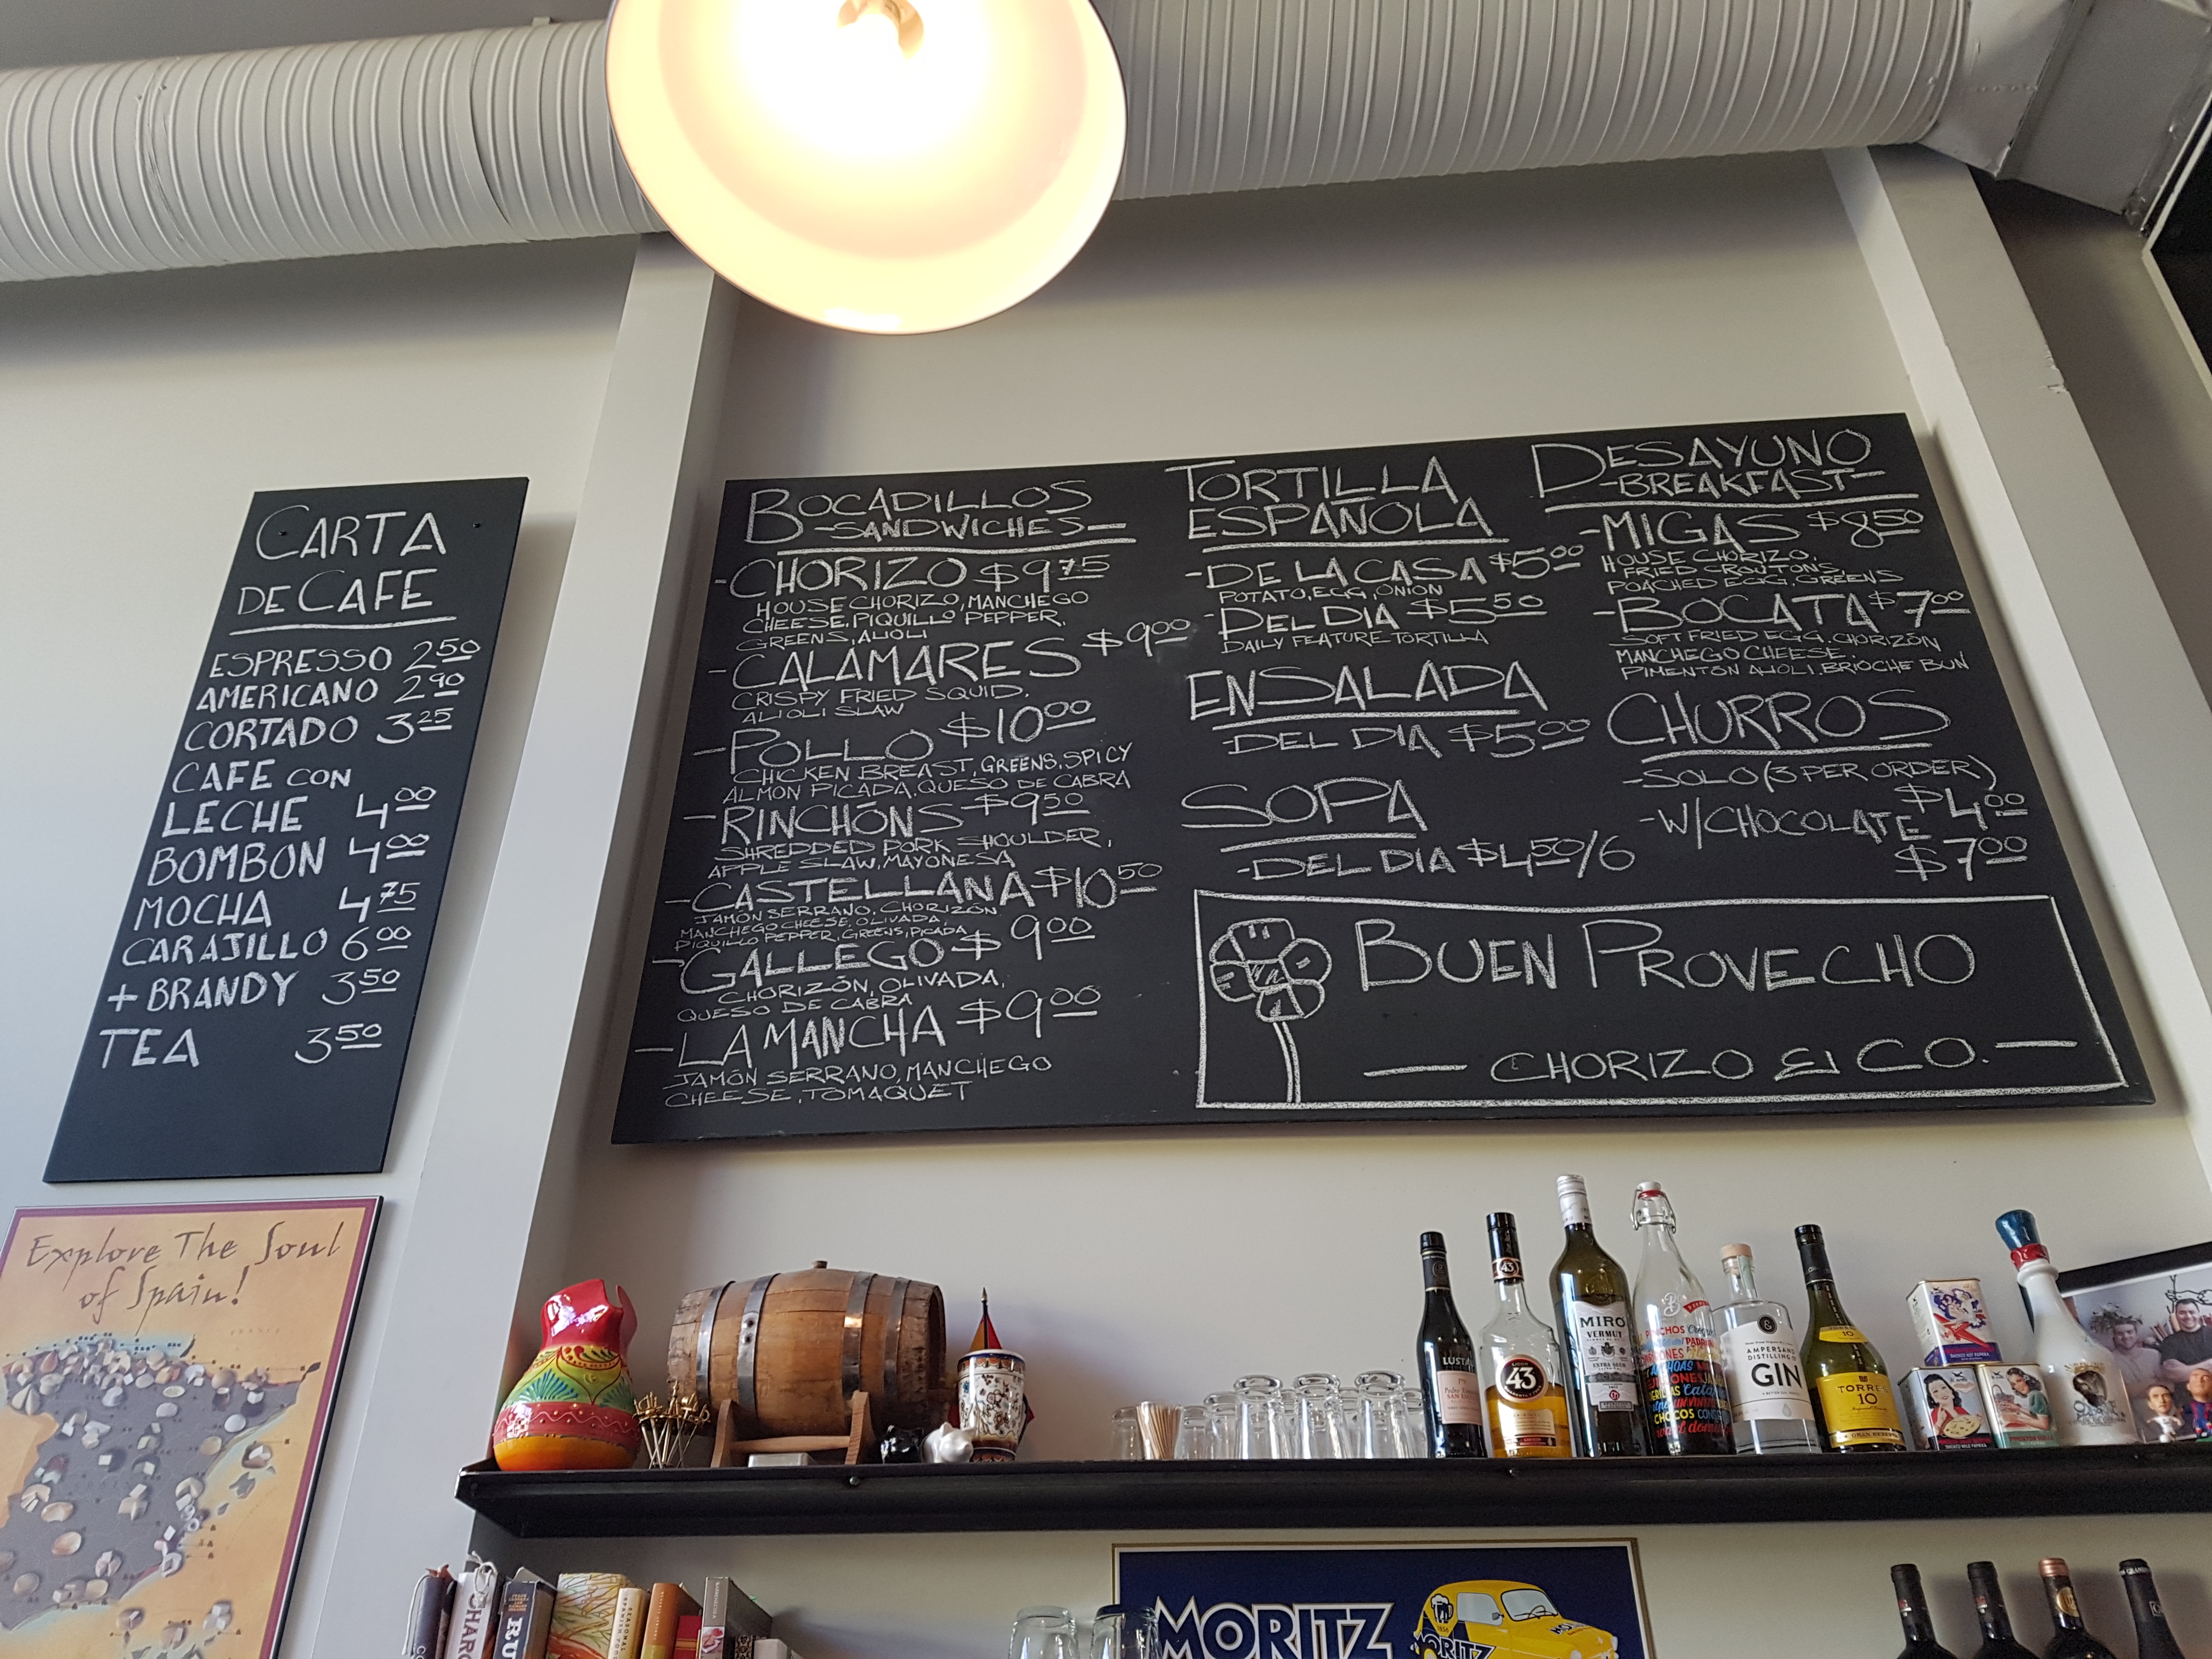 CARTA
DE CAFE
ESPRESSO 2.50
AMERICANO 2.90
CORTADO 3.25
CAFE CON
LECHE 4.00
BOMBON 4.00
MOCHA 4.75
CARAJILLO 6.00
+ BRANDY 3.50
TEA 3.50
BOCADILLOS
-SANDWICHES-
-CHORIZO $9.75
HOUSE CHORIZO, MANCHEGO
CHEESE, PIQUILLO PEPPER,
GREENS, ALIOLI
-CALAMARES $9.00
CRISPY FRIED SQUID,
ALIOLI SLAW
-POLLO $10.00
CHICKEN BREAST, GREENS, SPICY
ALMON PICADA, QUESO DE CABRA
-RINCHÓNS $9.50
SHREDDED PORK SHOULDER,
APPLE SLAW, MAYONESA
-CASTELLANA $10.50
JAMÓN SERRANO, CHORIZÓN
MANCHEGO CHEESE, OLIVADA,
PIQUILLO PEPPER, GREENS, PICADA
-GALLEGO $9.00
CHORIZÓN, OLIVADA,
QUESO DE CABRA
-LA MANCHA $9.00
JAMÓN SERRANO, MANCHEGO
CHEESE, TOMAQUET
TORTILLA
ESPAÑOLA
-DE LA CASA $5.00
POTATO, EGG, ONION
-DEL DIA $5.50
DAILY FEATURE TORTILLA
ENSALADA
-DEL DIA $5.00
SOPA
-DEL DIA $4.50/6
DESAYUNO
-BREAKFAST-
-MIGAS $8.50
HOUSE CHORIZO,
FRIED CROUTONS,
POACHED EGG, GREENS
-BOCATA $7.00
SOFT FRIED EGG, CHORIZÓN
MANCHEGO CHEESE,
PIMENTÓN ALIOLI, BRIOCHE BUN
CHURROS
-SOLO (3 PER ORDER)
$4.00
-W/CHOCOLATE
$7.00
BUEN PROVECHO
— CHORIZO & CO. —
Explore The Soul
of Spain!
LUSTAU
43
MIRO
VERMUT
AMPERSAND
DISTILLING
GIN
TORRES
10
MORITZ
MORITZ